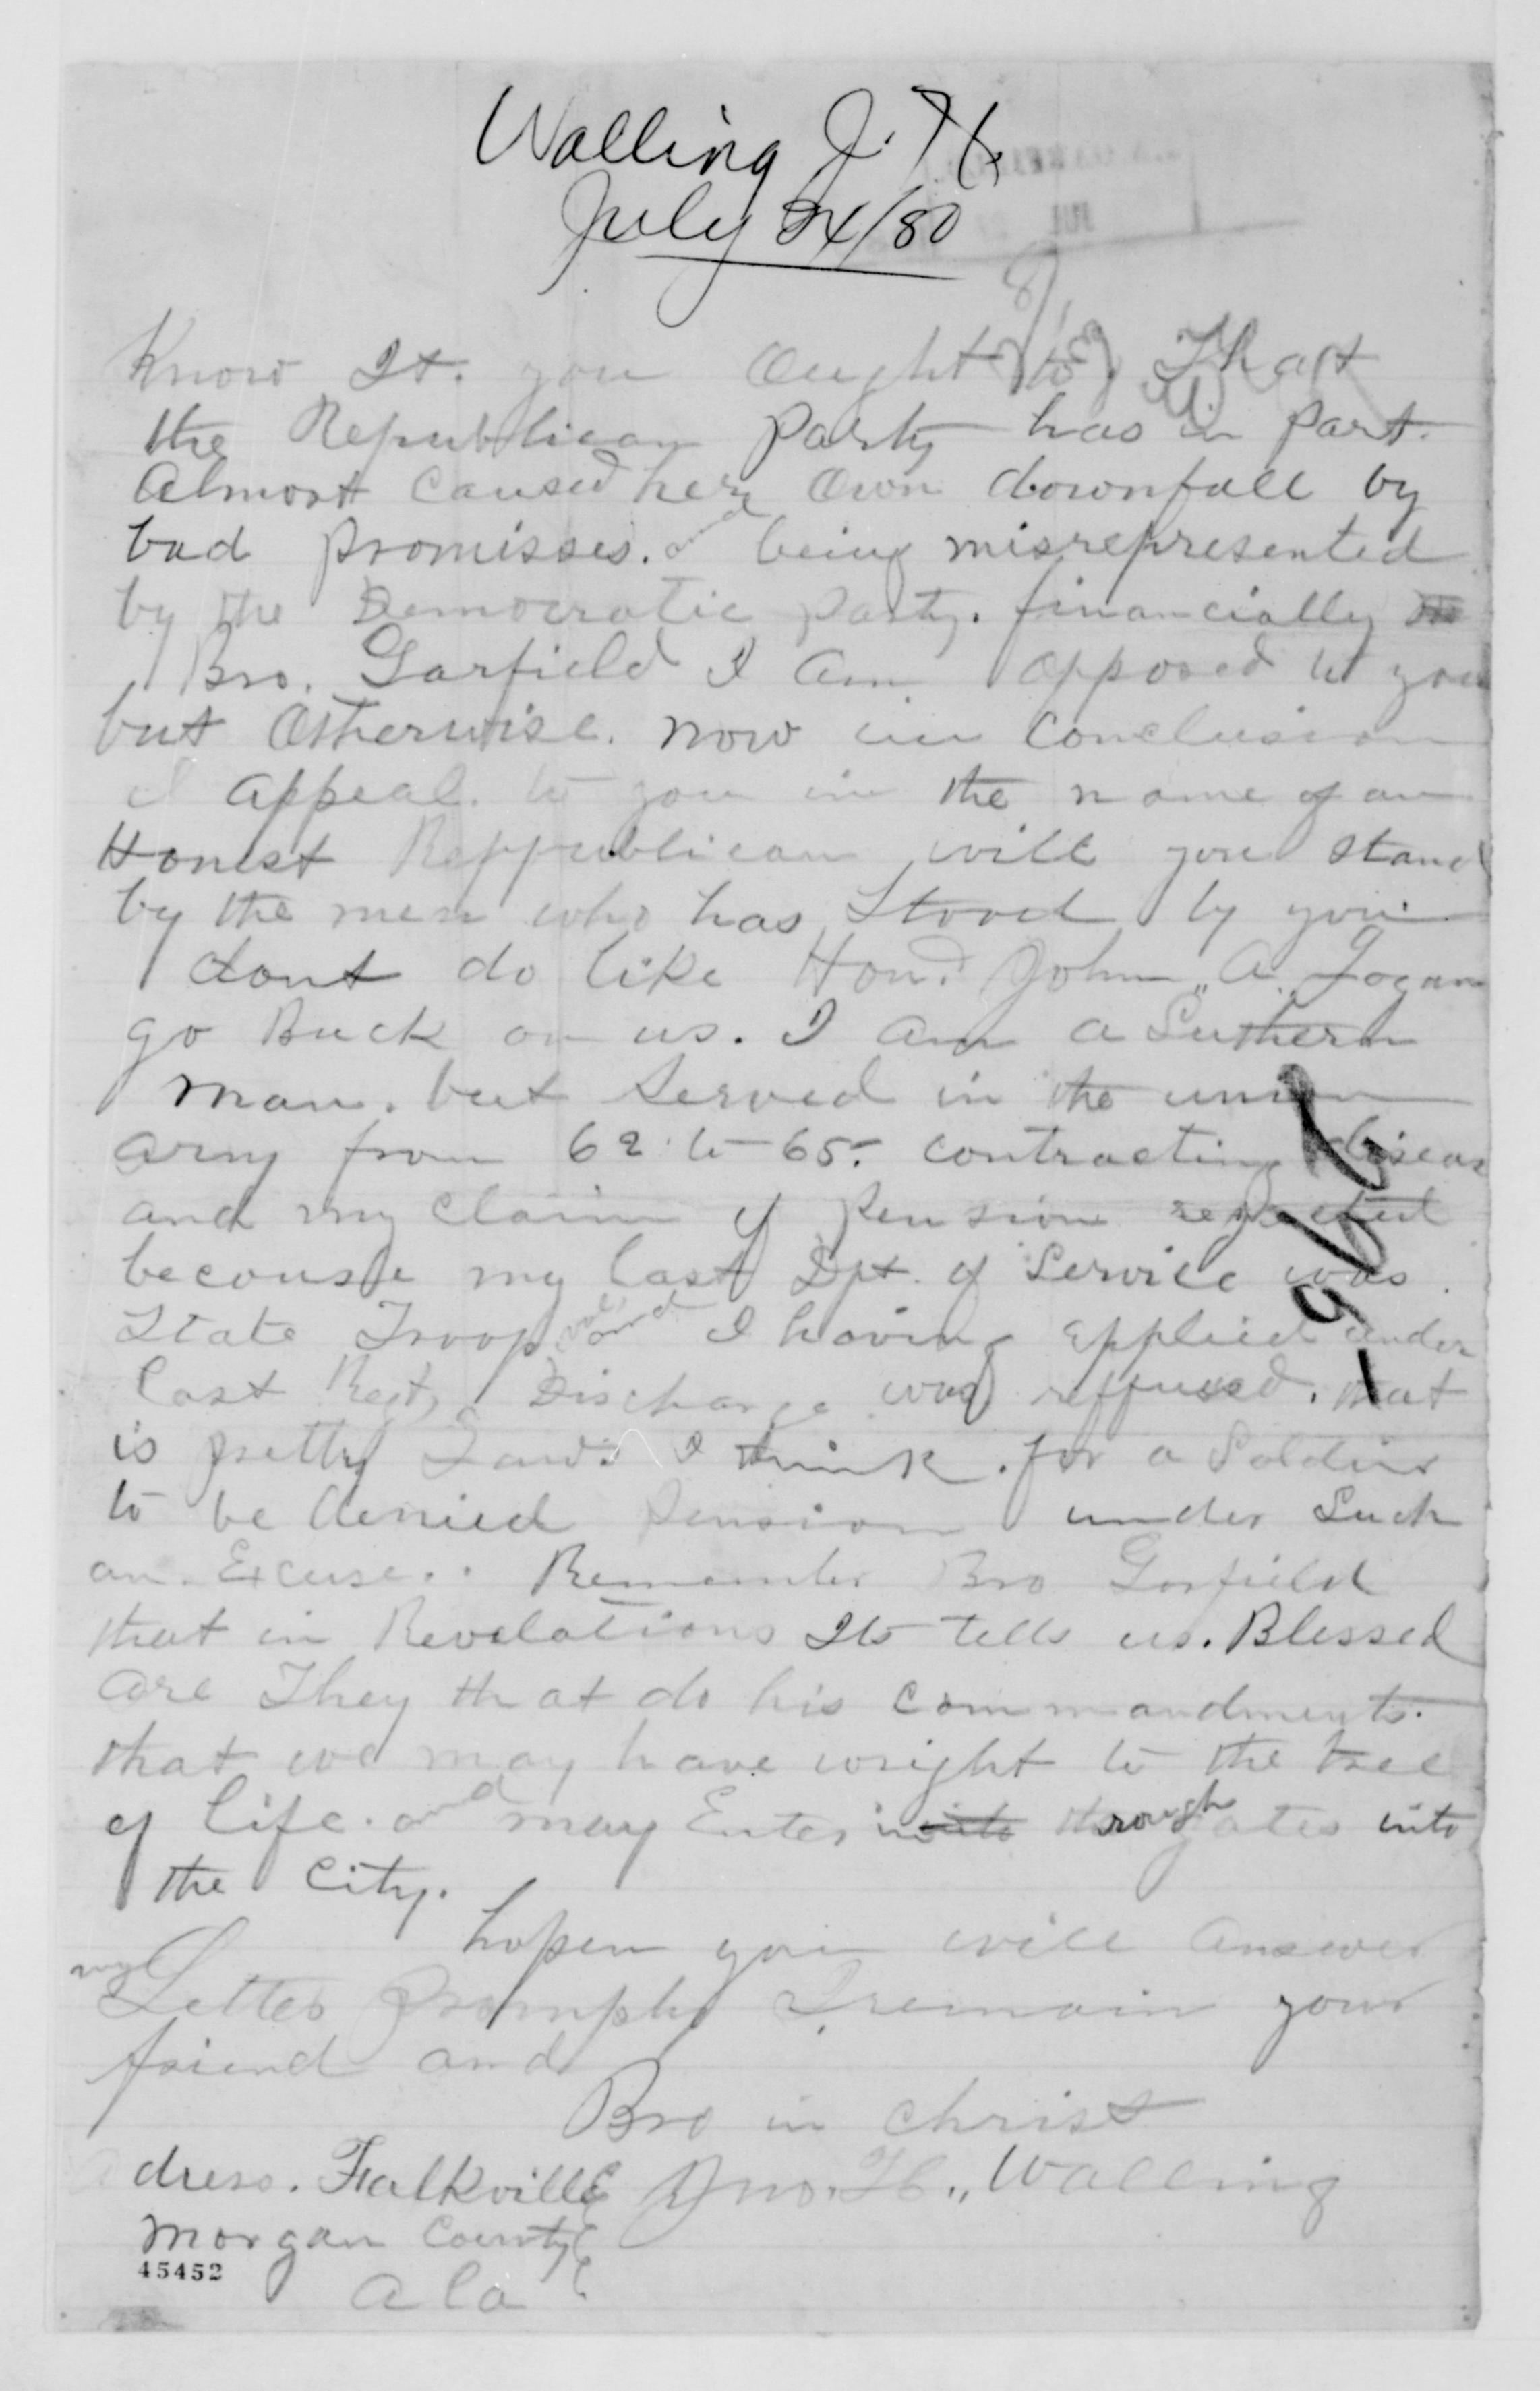 Walling J. H.
July 24/80
Know It. you Ought to, That
the Republican Party has in part.
Almost Caused her Own downfall by
bad promisses. and being misrepresented
by the Democratic Party. financially
Bro. Garfield I am opposed to you
but Otherwise. now in Conclusion
I appeal. to you in the name of an
Honest Reppublican will you stand
by the men who has Stood by you.
dont do like Hon. John A. Logan
go Back on us. I am a Suthern
man. but Served in the union
army from 62 to 65. contracting diseas
and my Claim of pension rejected
becouse my last Dpt. of Service was
State Troop and I having applied under
last Regt, Discharge was reffused. that
is pretty I think. for a Soldier
to be denied Pension under Such
an Excuse.. Remember Bro Garfield
that in Revelations Its tells us. Blessed
are They that do his commandments.
that we may have wright to the tree
of life. and may Enter through gates into
the City.
hopen you will Answer
my Letter Promply I remain your
friend and
Bro in Christ
Adress. Falkville Jno. H., Walling
Morgan County
45452
Ala